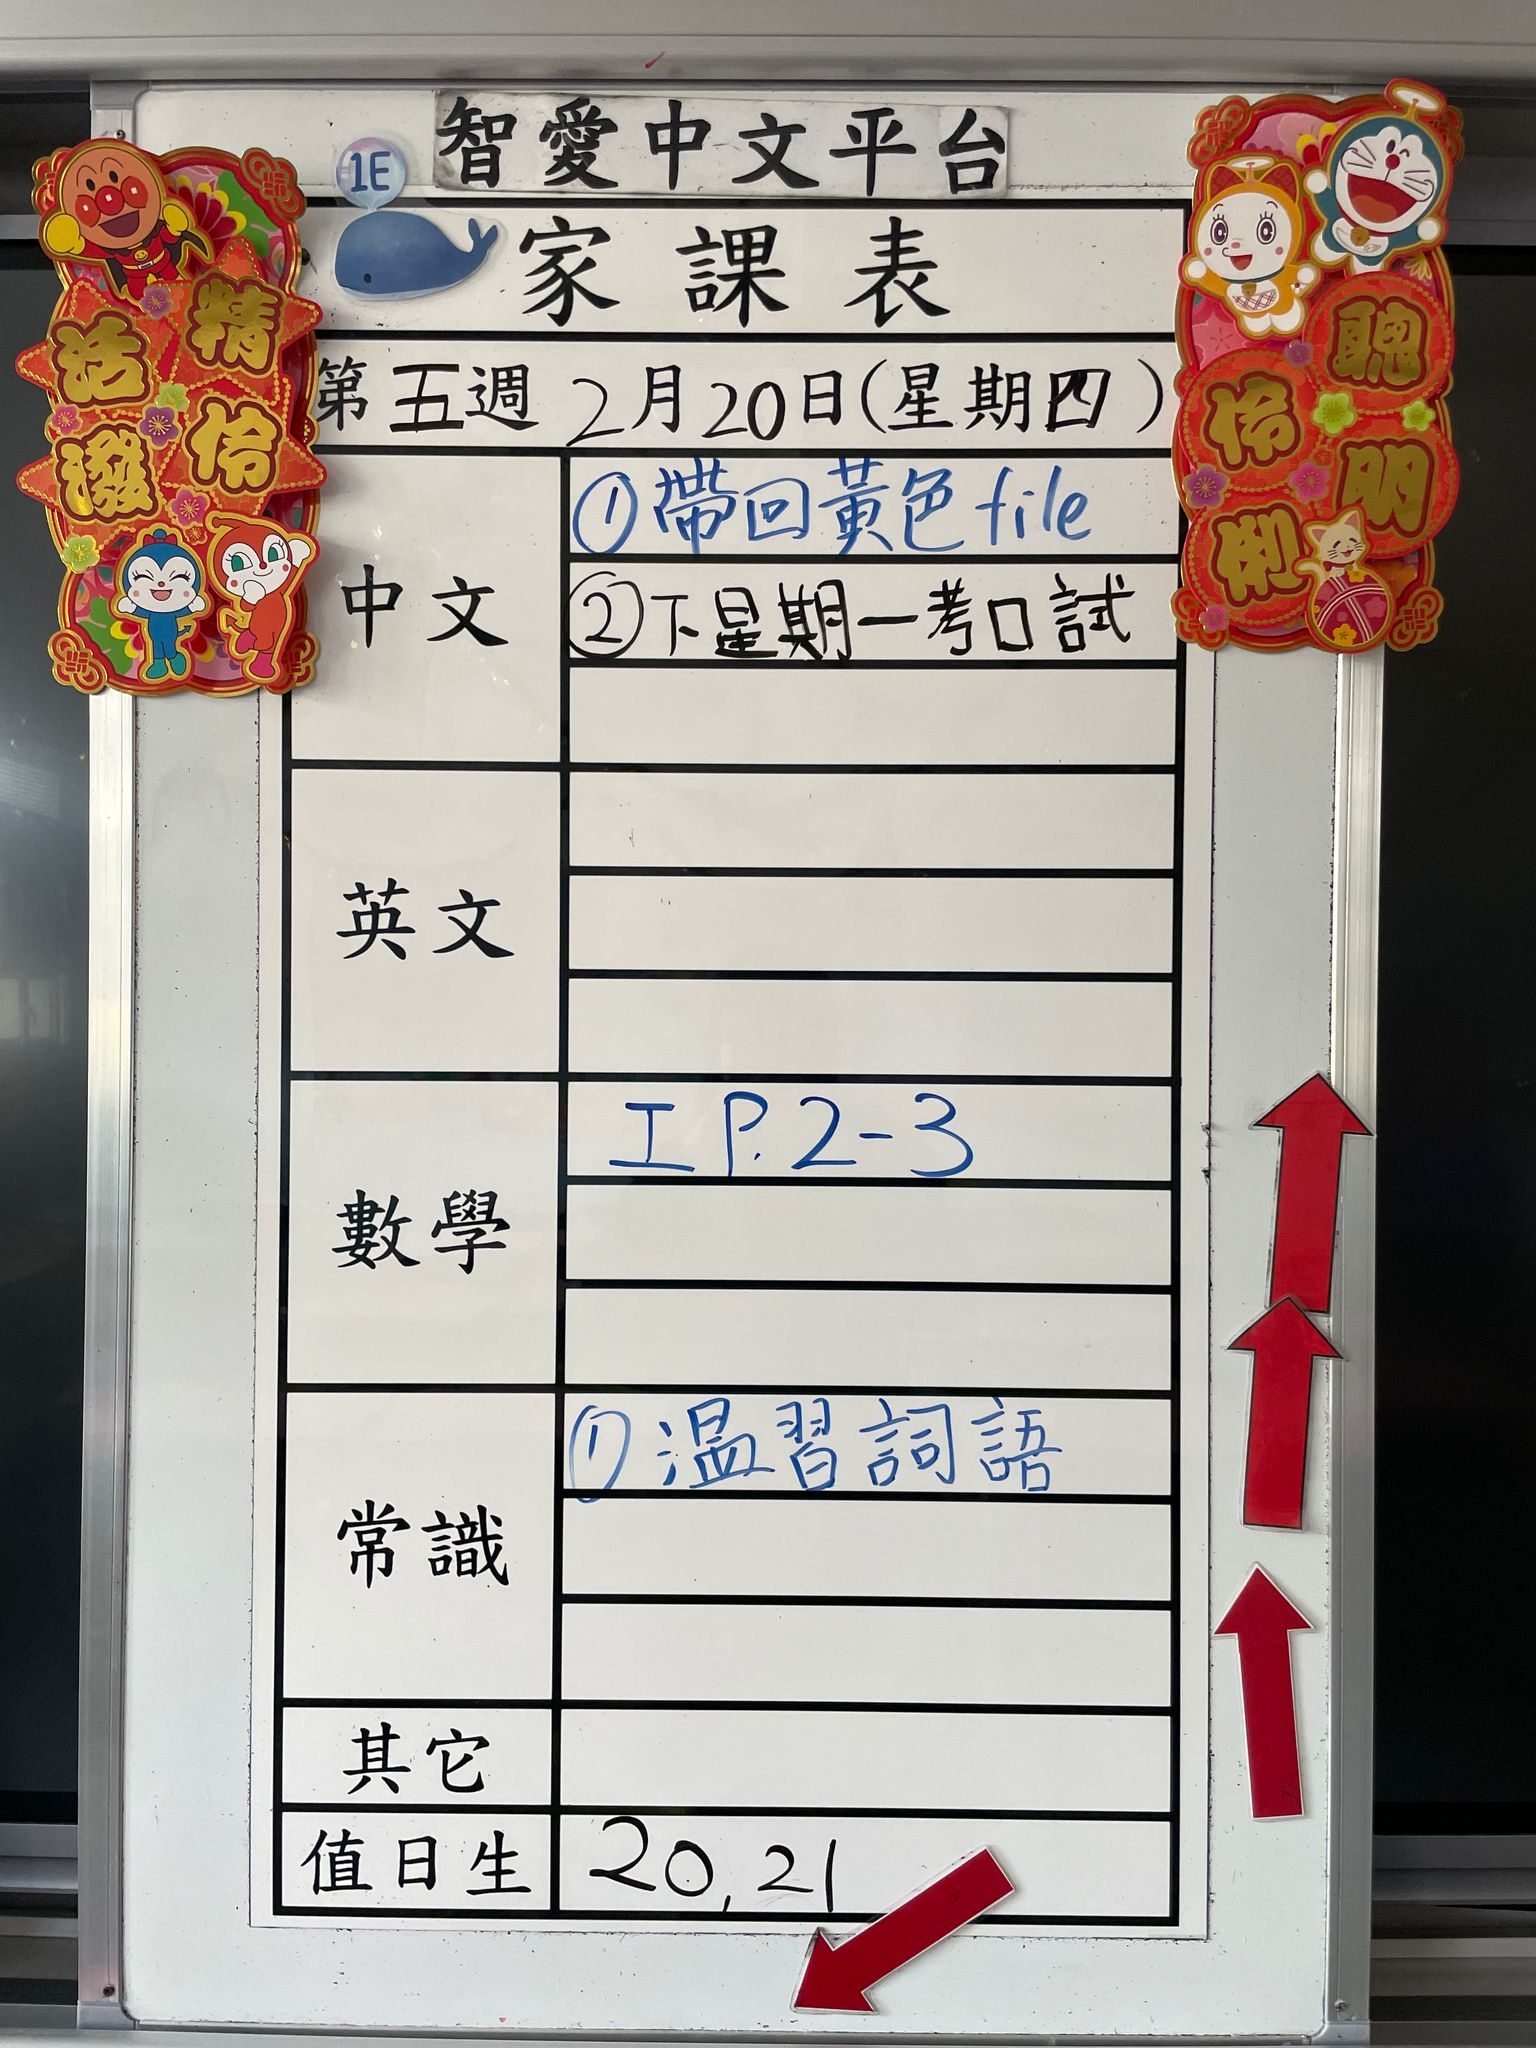 智愛中文平台
1E
家課表
精伶
活潑
聰明
伶俐
第五週 2月20日(星期四)
中文
①帶回黃色file
②下星期一考口試
英文
數學
工 P.2-3
常識
①温習詞語
其它
值日生
20,21